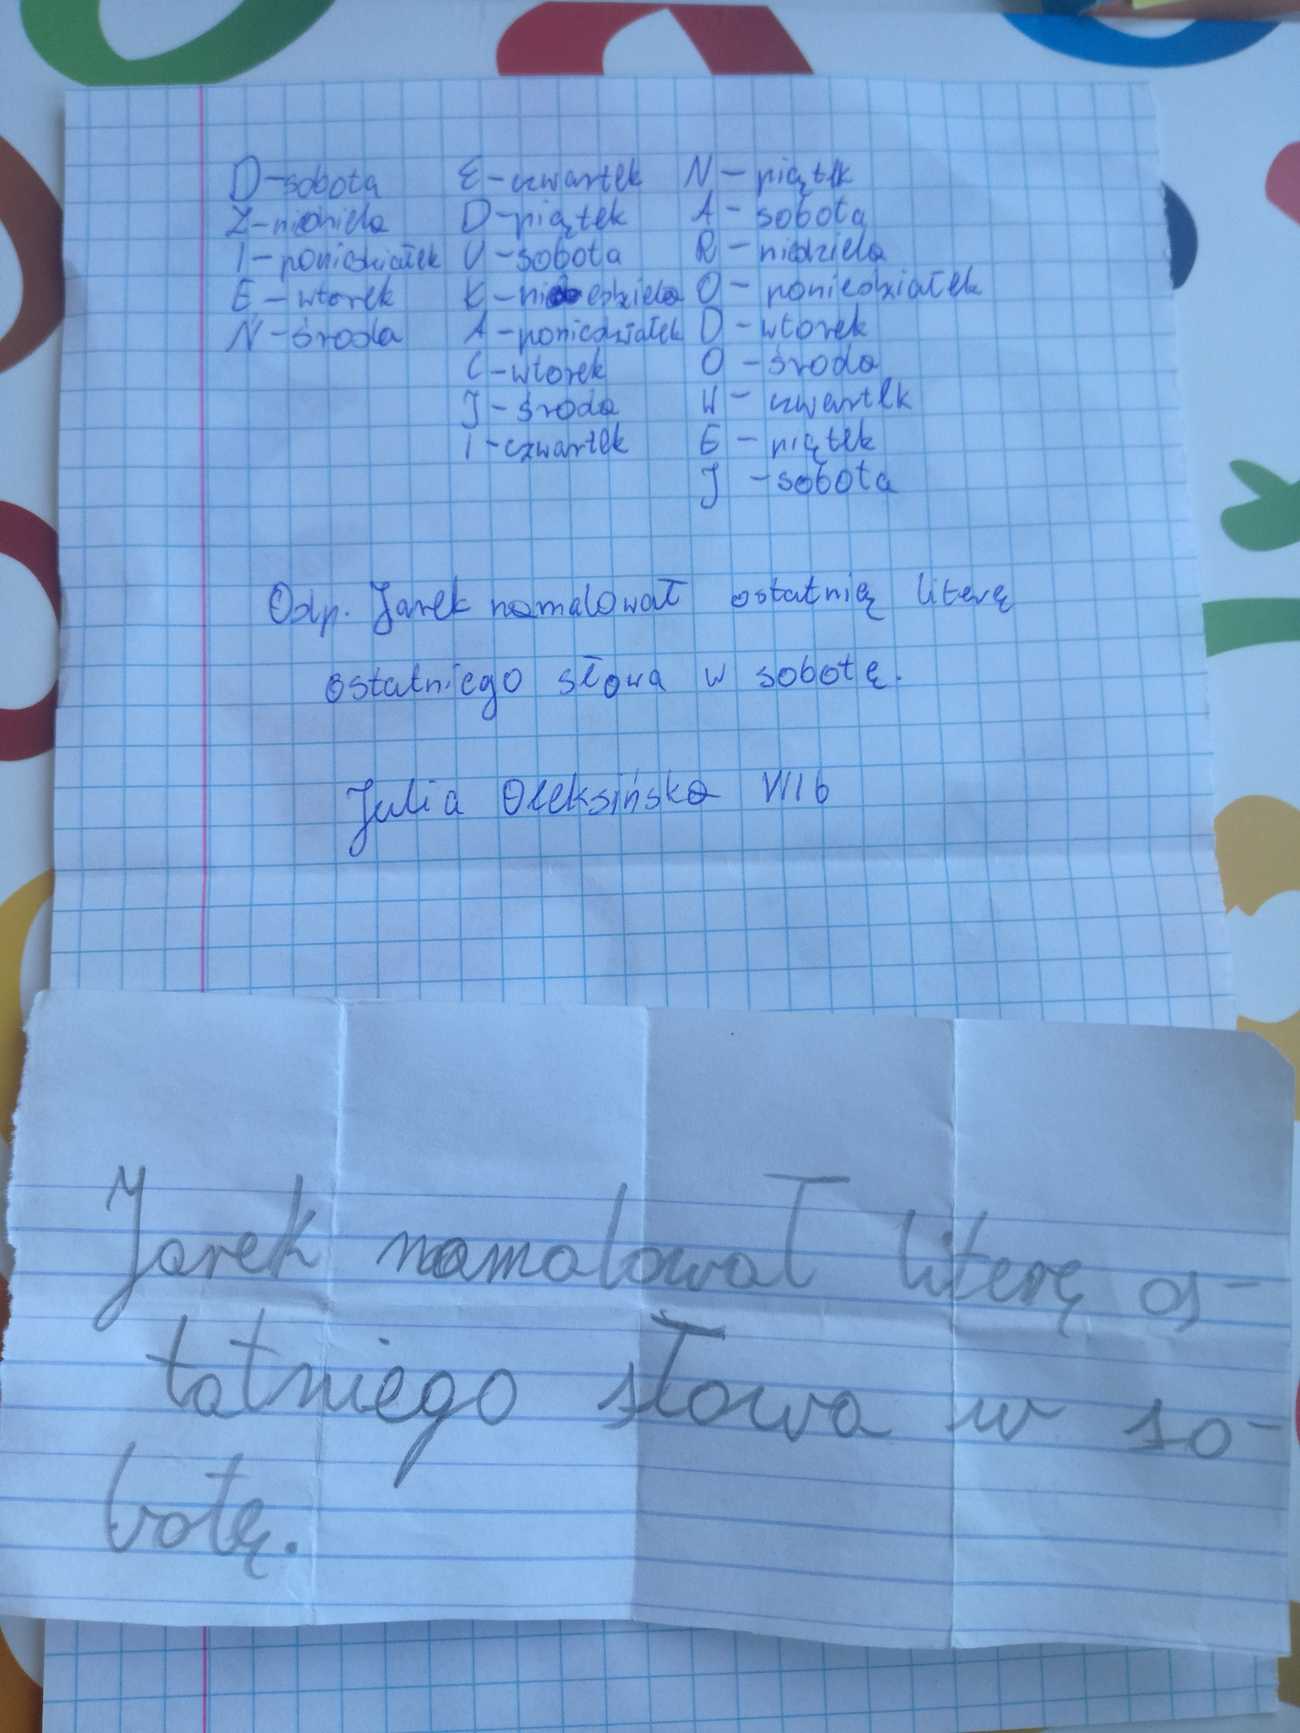 D-sobota E-czwartek N-piątek
Z-niedziela D-piątek A-sobota
I-poniedziałek U-sobota R-niedziela
E-wtorek K-niedziela O-poniedziałek
Ń-środa A-poniedziałek D-wtorek
C-wtorek O-środa
J-środa W-czwartek
I-czwartek E-piątek
J-sobota
Odp. Jarek namalował ostatnią literę
ostatniego słowa w sobotę.
Julia Oleksińska VIIb
Jarek namalował literę os-
tatniego słowa w so-
botę.